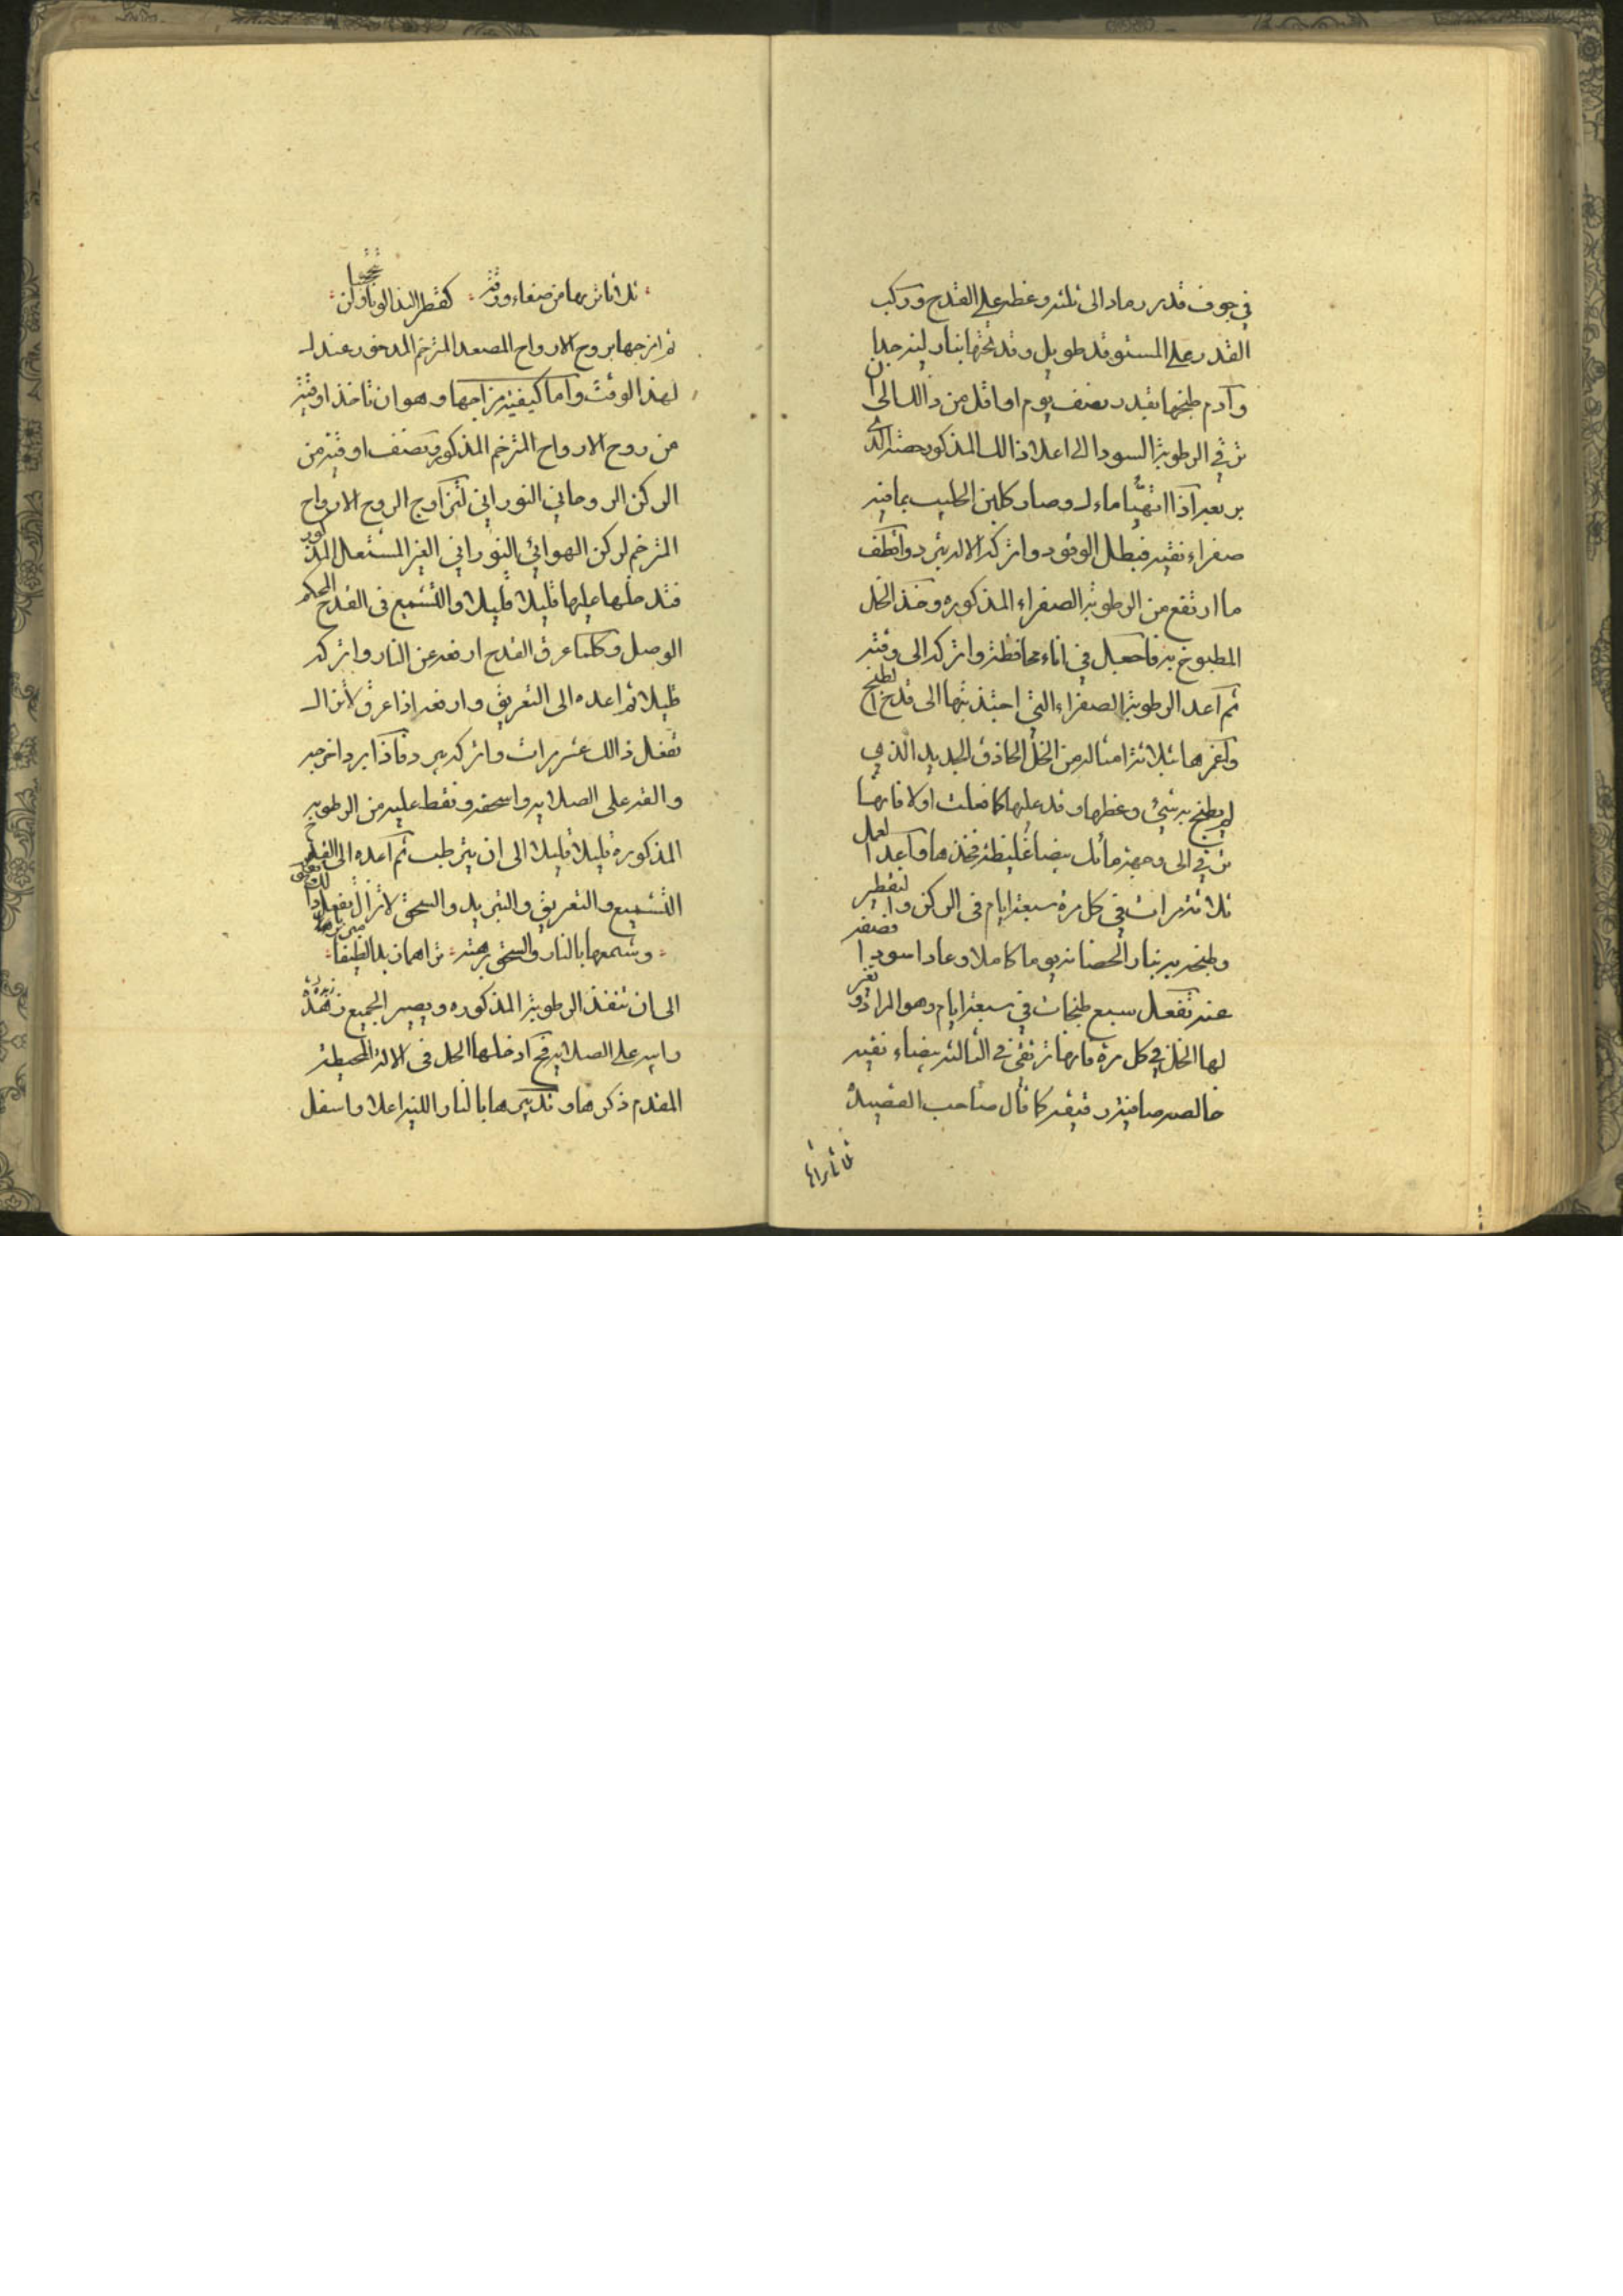 في جوف قدر رماد الى ثلثه وغطر على القدح وركب
القدر على المستوقد طويل وقد تحتها بنار لينه جدا
وآدم طبخها بقدر نصف يوم او اقل من ذالك الى ان
ترقي الرطوبة السودا الى اعلا ذالك المذكور الذي
اذا انتهيا ماء وصار كلبن الحليب بما فيه
صفراء نقيه فبطل الوقود واتركه الاله يبرد واقطف
ما ارتفع من الرطوبة الصفراء المذكوره وخذ الخل
المطبوخ به فاجعل في اناء محافظة واتركه الى وقته
ثم آعد الرطوبة الصفراء التي اجتذبتها الى قدح الطبخ
واغمرها بثلاثة امثاله من الخل الحاذق الجديد الذي
لم يطبخ به شيئ وغطها وقد عليها كما فعلت اولا فانها
ترقي الى وجهه بيضا غليظة فخذها واعد العمل
ثلاثة مرات في كل مرة سبعة ايام في الركن والتقطير
وطبخه به بنار الحضانه يوما كاملا وعاد اسودا فصفه
عنه تفعل سبع طبخات في سبعة ايام وهو المراد وتغير
لها الخل في كل مرة فانها ترتقي في الثالثه بيضاء نقيه
خالصه صافيه رقيقه كما قال صاحب القصيدة
ثلاثا تراها من صفاء ورقة كقطر الندا
ثم امزجها بروح الارواح المصعد المترخم المدخور عندك
لهذا الوقت واما كيفية مزاجها وهو ان تاخذ اوقية
من روح الارواح المترخم المذكور ونصف اوقية من
الركن الروحاني النوراني لتزاوج الروح الارواح
المترخم لركن الهوائي النوراني الغير المستعل المذكور
فتدخلها عليها قليلا قليلا والتشميع في القدح المحكم
الوصل وكلما عرق القدح ارفعه عن النار واتركه
قليلا ثم اعده الى التعريق وارفعه اذا عرق لا تزال
تفعل ذالك عشر مرات واتركه يبرد فاذا برد اخرجه
والقه على الصلايه واسحقه ونقط عليه من الرطوبه
المذكورة قليلا قليلا الى ان يترطب ثم آعده الى القدح
التشميع والتعريق والتبريد والسحق لا تزال تفعل ذا
وشمعها بالنار والسحق برهة تراهما
الى ان تنفذ الرطوبة المذكوره ويصير الجميع زهدة
رابيه على الصلايه فح آدخلها الحل في الاله المحيطة
المقدم ذكرها وتدبيرها بالنار اللينه اعلا واسفل